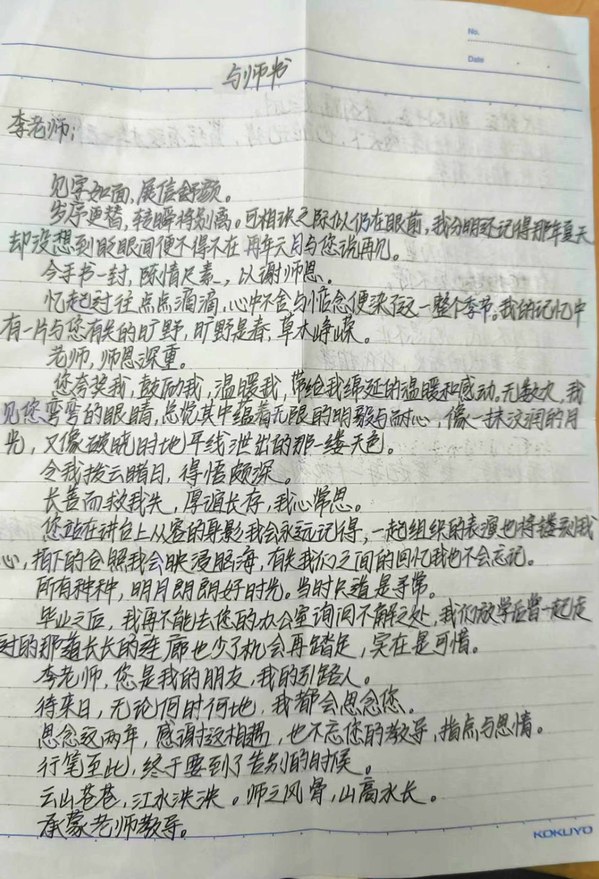 No.
Date
与师书
李老师:
见字如面,展信舒颜。
岁序更替,转瞬将别离。可相谈之际似仍在眼前,我分明还记得那年夏天
却没想到眨眼间便不得不在两年六月与您说再见。
今手书一封,既情尺素,以谢师恩。
忆起过往点点滴滴,心中不舍与惦念便染了这一整个季节。我的记忆中
有一片与您有关的旷野,旷野是春,草木峥嵘。
老师,师恩深重。
您夸奖我,鼓励我,温暖我,带给我绵延的温暖和感动。无数次,我
见您弯弯的眼睛,总觉其中蕴着无限的明敏与耐心,像一抹温润的月
光,又像破晓时地平线泄出的那一缕天色。
令我拨云睹日,得悟颇深。
长善而救我失,厚谊长存,我心常思。
您站在讲台上从容的身影我会永远记得,一起组织的表演也将镂刻我
心,拍下的合照我会映浸脑海,有关我们之间的回忆我也不会忘记。
所有种种,明月朗朗好时光。当时只道是寻常。
毕业之后,我再不能去您的办公室询问不解之处,我们放学后曾一起走
过的那道长长的连廊也少了机会再踏足,实在是可惜。
李老师,您是我的朋友,我的引路人。
待来日,无论何时何地,我都会思念您。
思念这两年,感谢这相遇,也不忘您的教导,指点与恩情。
行笔至此,终于要到了告别的时候。
云山苍苍,江水泱泱。师之风骨,山高水长。
承蒙老师教导。
KOKUYO